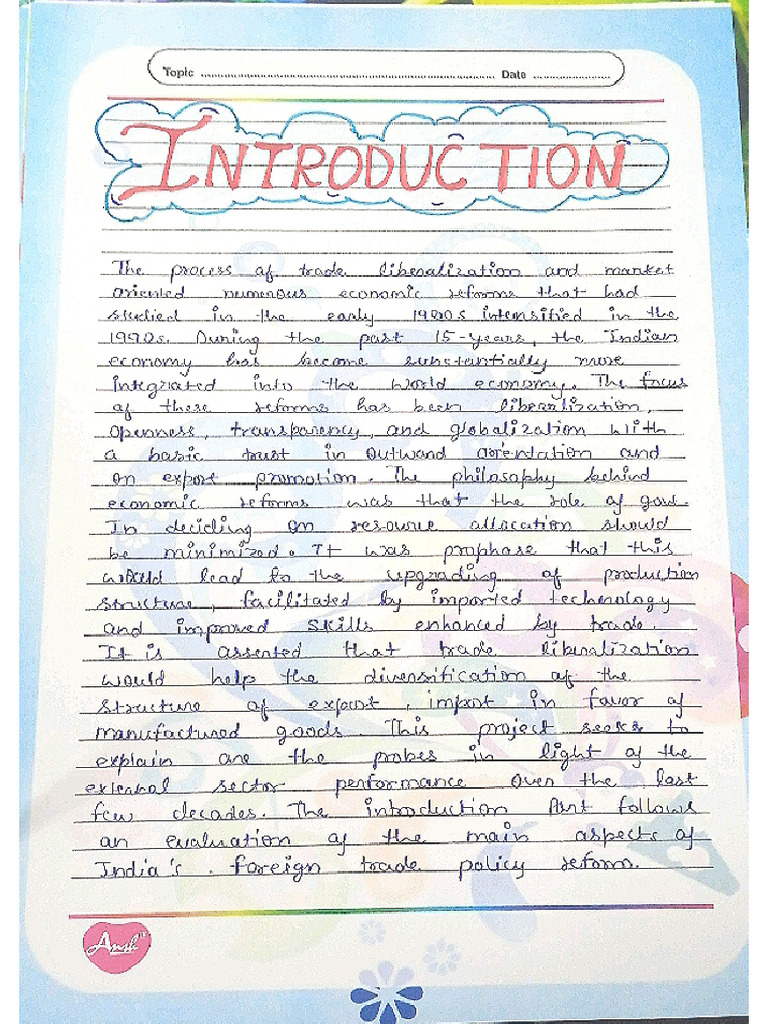 Topic ........................ Date ................
INTRODUCTION
The process of trade liberalization and market
oriented numerous economic reforms that had
studied in the early 1980s intensified in the
1990s. During the past 15-years, the Indian
economy has become substantially more
integrated into the world economy. The focus
of these reforms has been liberalization,
openness, transparency, and globalization with
a basic trust in outward orientation and
on export promotion. The philosophy behind
economic reforms was that the role of govt.
In deciding on resource allocation should
be minimized. It was prophase that this
would lead to the upgrading of production
structure, facilitated by imported technology
and improved skills enhanced by trade.
It is asserted that trade liberalization
would help the diversification of the
structure of export, import in favor of
manufactured goods. This project seeks to
explain are the probes in light of the
external sector performance over the last
few decades. The introduction Part follows
an evaluation of the main aspects of
India's. foreign trade policy reform.
Ansh